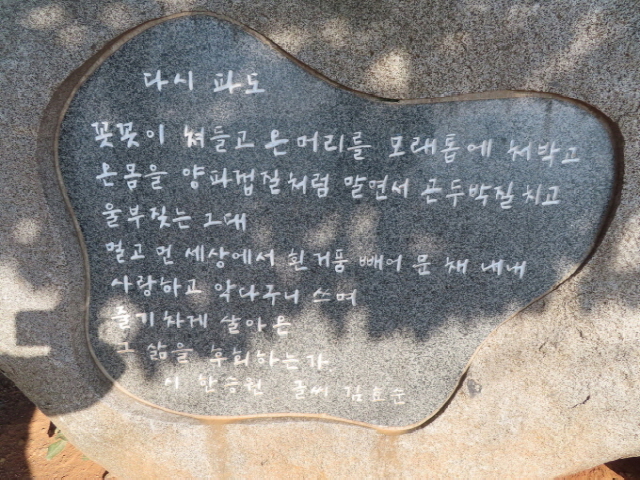 다시 파도
꼿꼿이 쳐들고 온 머리를 모래톱에 처박고
온몸을 양파껍질처럼 말면서 곤두박질치고
울부짖는 그대
멀고 먼 세상에서 흰 거품 빼어 문 채 내내
사랑하고 악다구니 쓰며
줄기차게 살아온
그 삶을 후회하는가
시 한승원 글씨 김효순